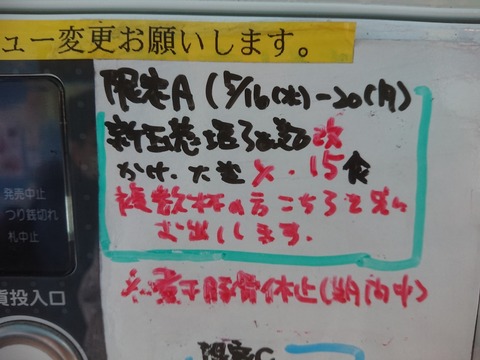 ュー変更お願いします。
限定A (5/16(水)-20(月)
新玉葱塩そば 改
かけ、大盛 x・15食
複数杯の方こちらを先に
お出しします。
発売中止
つり銭切れ
札中止
貨投入口
豚骨休止(期間中)
限定C